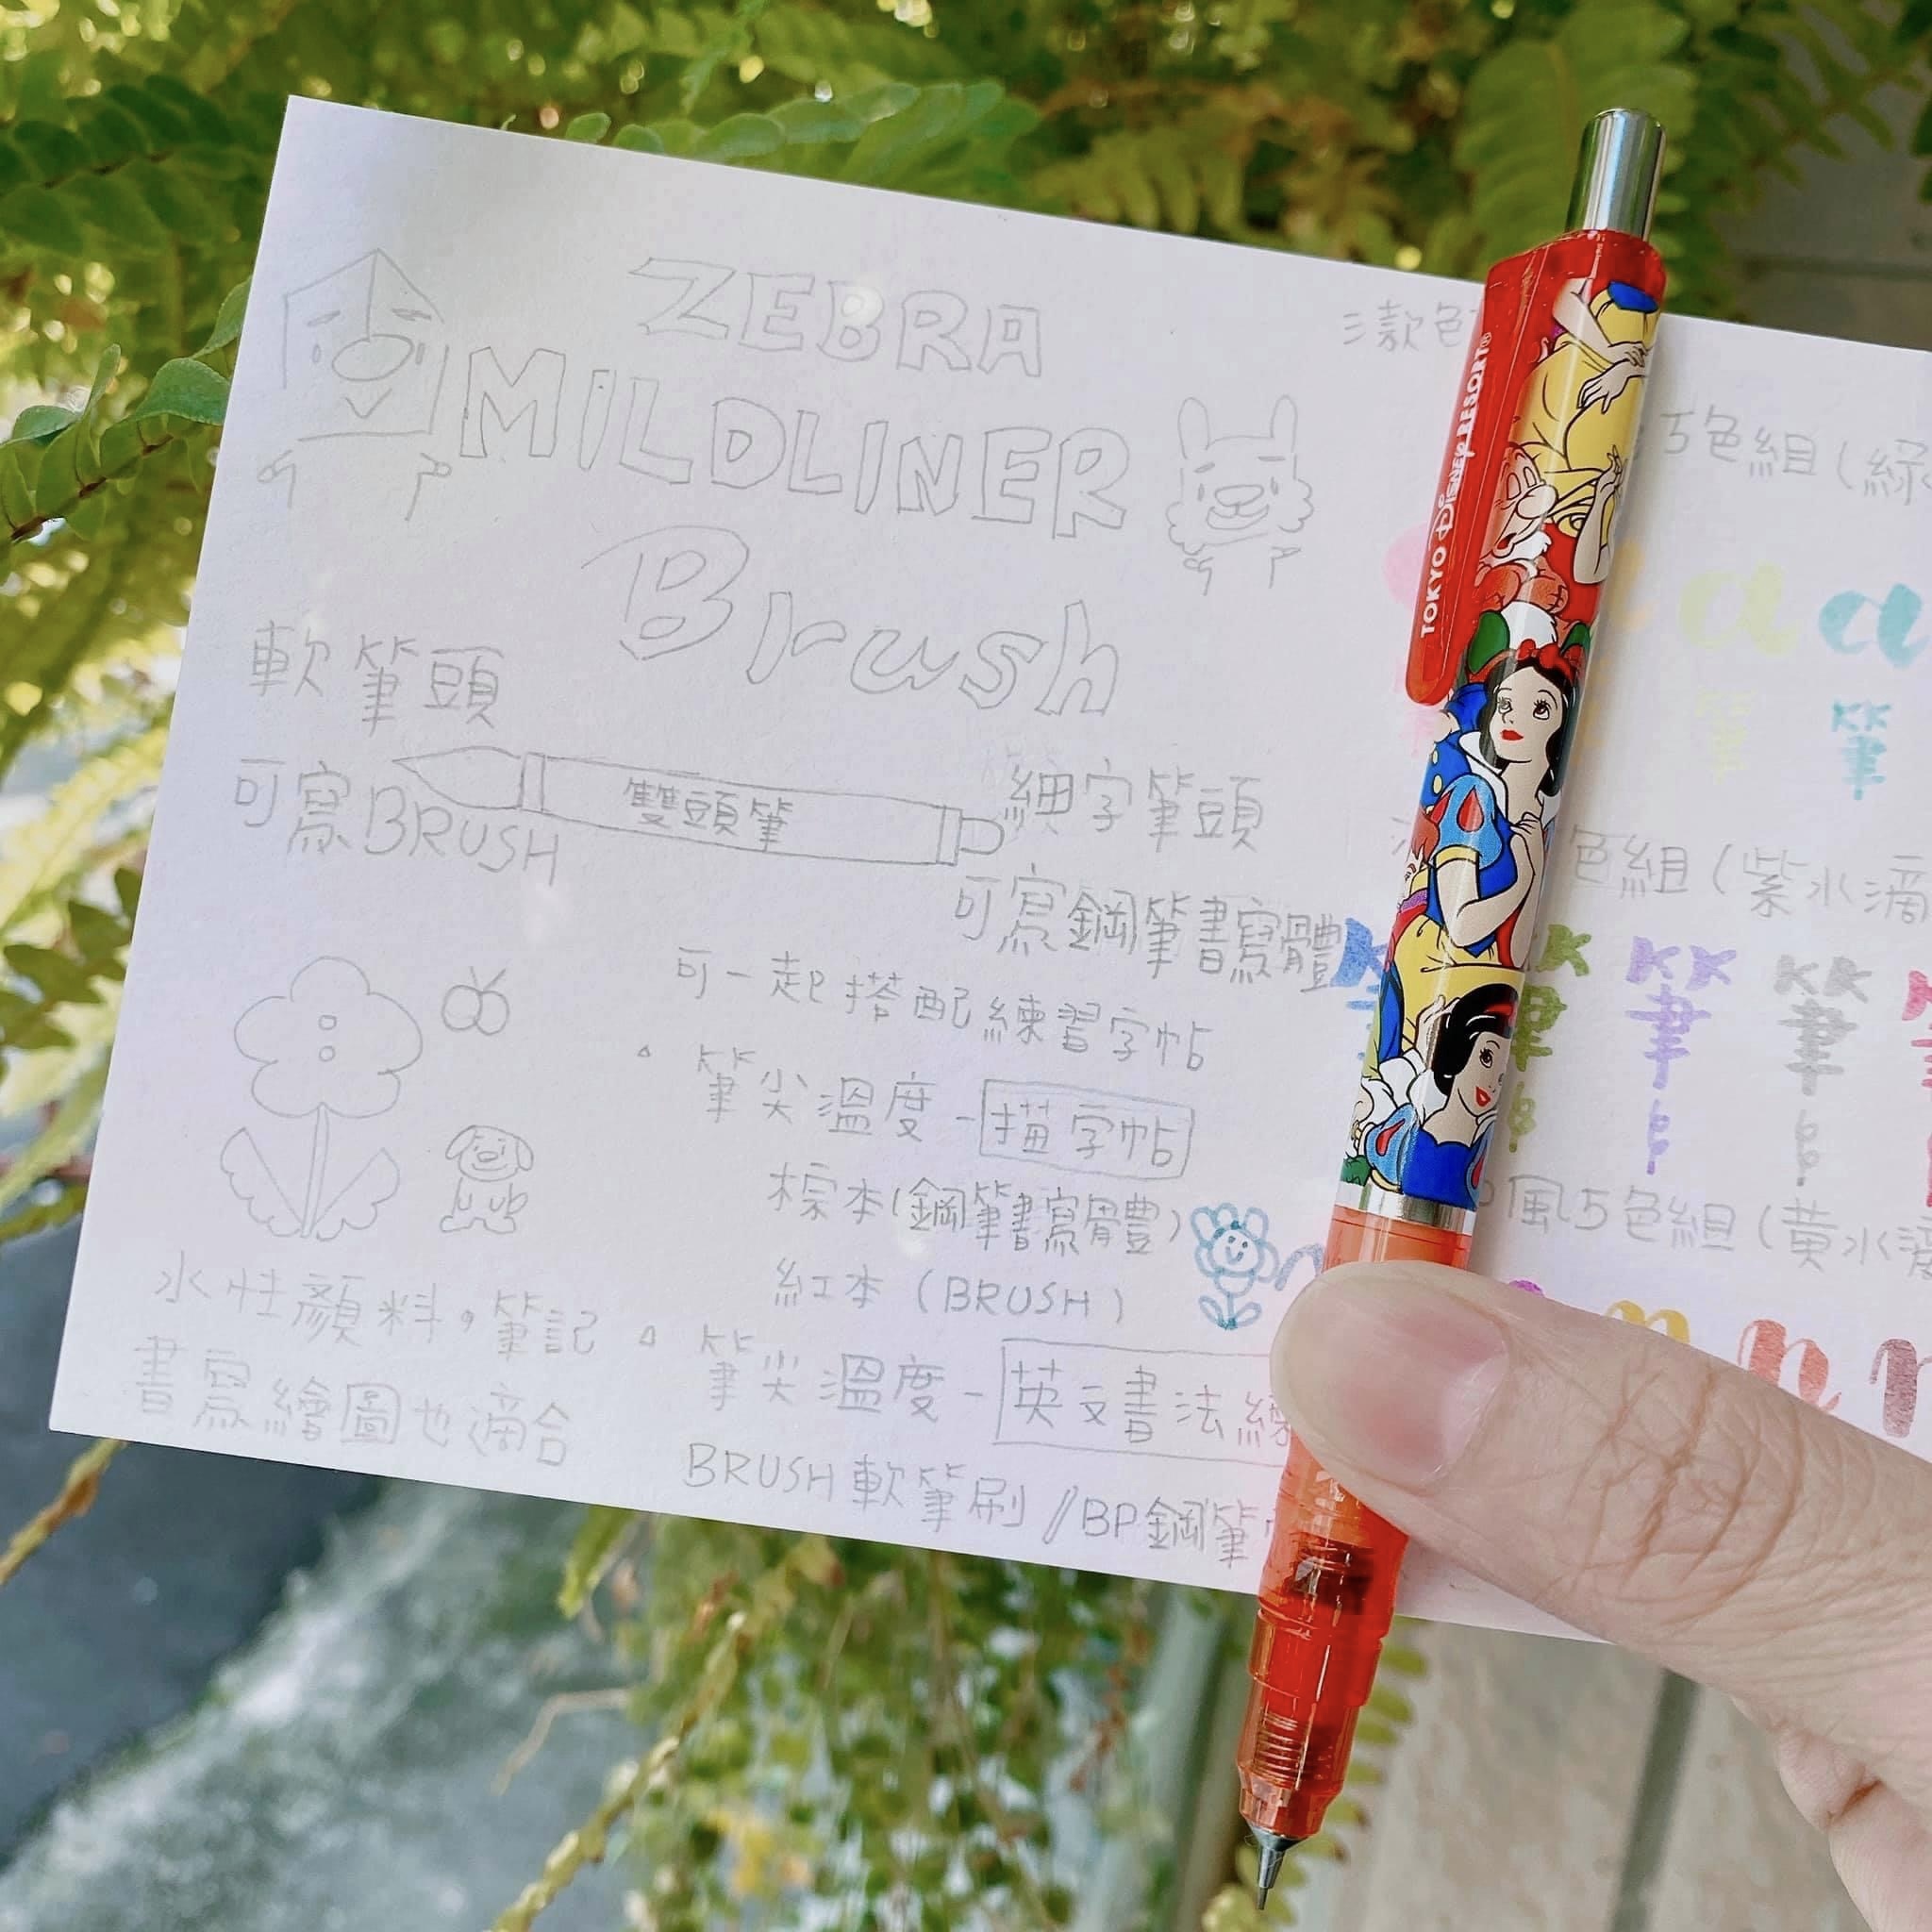 ZEBRA
MILDLINER
Brush
軟筆頭
可寫BRUSH
雙頭筆
細字筆頭
可寫鋼筆書寫體
可一起搭配練習字帖
筆尖溫度-描字帖
棕本(鋼筆書寫體)
紅本(BRUSH)
筆尖溫度-英文書法練
BRUSH軟筆刷//BP鋼筆
水性顏料,筆記
書寫繪圖也適合
TOKYO Disney RESORT®
款色
5色組(綠
a a
筆 筆
色組(紫水滴
筆 筆 筆 筆
風5色組(黃水滴
n n